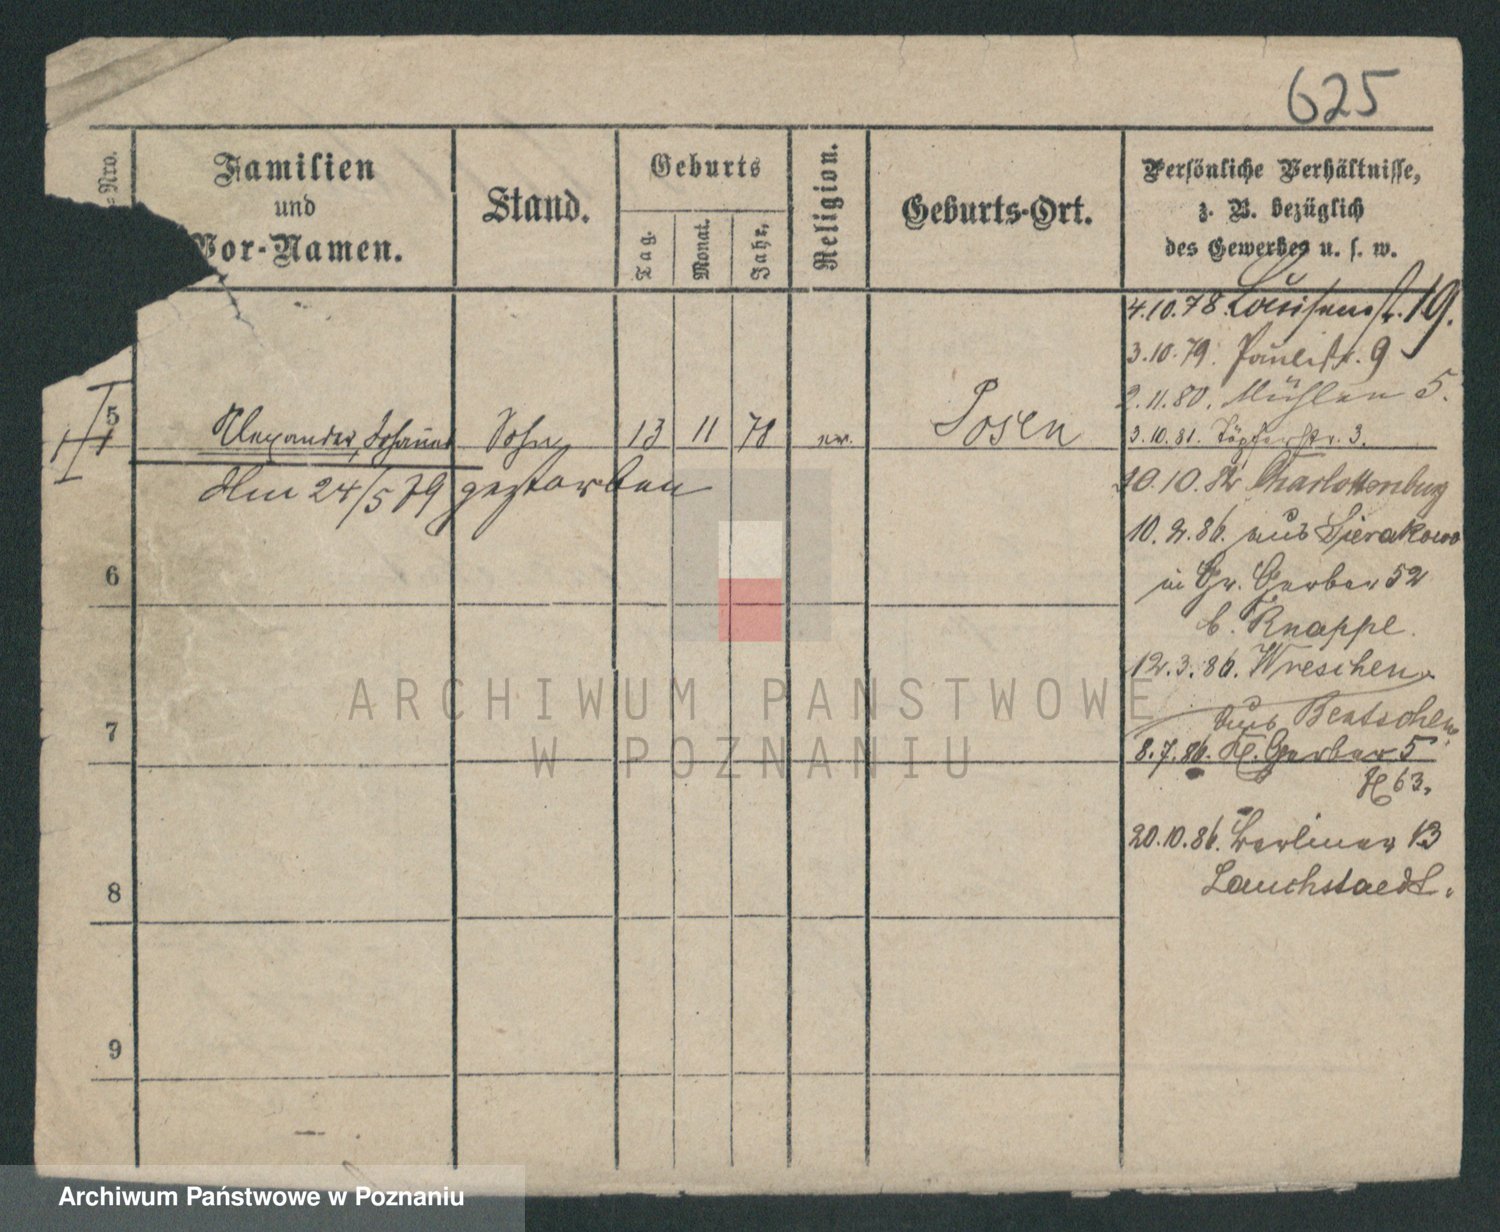 625
Nro.
Familien
und
Vor-Namen.
Stand.
Geburts
Tag.
Monat.
Jahr.
Religion.
Geburts-Ort.
Persönliche Verhältnisse,
z. B. bezüglich
des Gewerbes u. s. w.
4.10.78. Louisenst. 19.
3.10.79. Paulistr. 9
2.11.80. Mühlen 5.
5 Alexander, Johannes Sohn 13 11 78 ev. Posen 3.10.81. Töpferstr. 3.
Am 24/5 79 gestorben
10.10.82 Charlottenburg
10.2.86. aus Sierakowo
in Gr. Gerber 52
b. Knappe.
12.3.86. Wreschen.
aus Bentschen
8.7.86. Kl. Gerber 5
H 63.
20.10.86. Berliner 13
Lauchstaedt.
6
7
8
9
ARCHIWUM PAŃSTWOWE
W POZNANIU
Archiwum Państwowe w Poznaniu